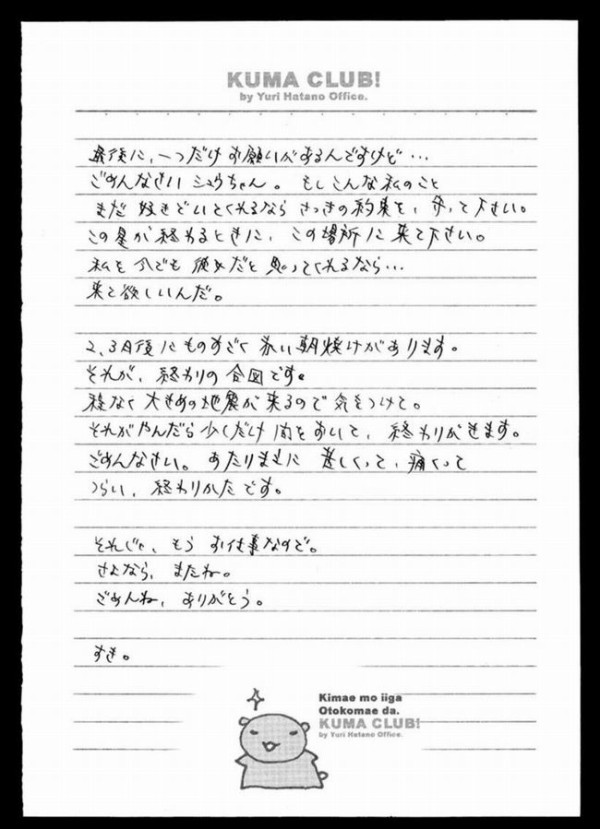 KUMA CLUB!
by Yuri Hatano Office.
最後に、一つだけお願いがあるんですけど…
ごめんなさい シュウちゃん。もしこんな私のこと
まだ 好きでいてくれるなら さっきの約束を、守って下さい。
この星が終わるときに、この場所に来て下さい。
私を 今でも 彼女だと思ってくれるなら…
来て欲しいんだ。
2、3月後にものすごく 赤い朝焼けがあります。
それが、終わりの合図です。
程なく大きめの地震が来るので気をつけて。
それがやんだら少しだけ間をおいて、終わりがきます。
ごめんなさい。あたりまえに 苦しくって、痛くって
つらい、終わりかたです。
それじゃ、もう お仕事なので。
さよなら、またね。
ごめんね、ありがとう。
すき。
Kimae mo iiga
Otokomae da.
KUMA CLUB!
by Yuri Hatano Office.